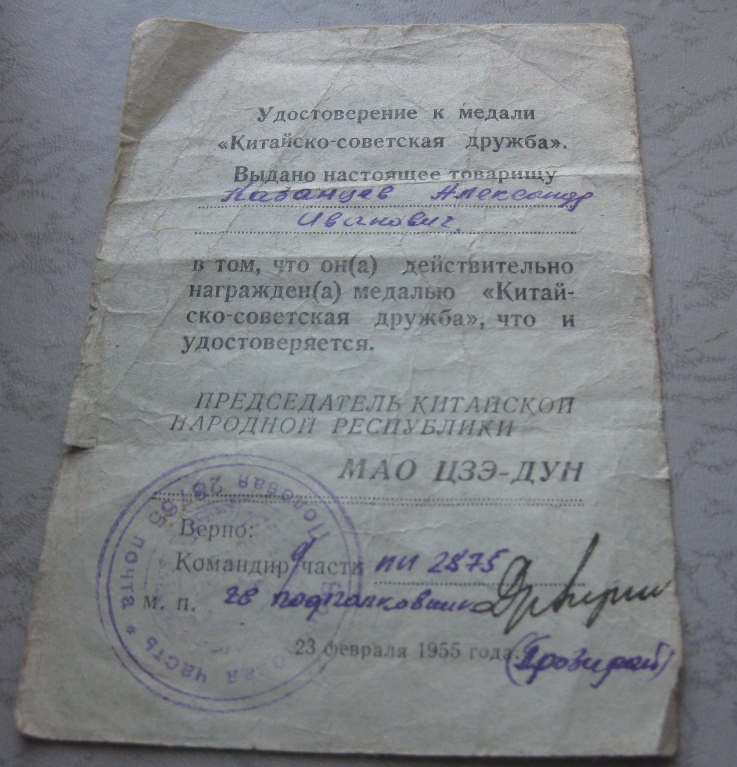 Удостоверение к медали
«Китайско-советская дружба».
Выдано настоящее товарищу
Казанцев Александр
Иванович.
в том, что он(а) действительно
награжден(а) медалью «Китай-
ско-советская дружба», что и
удостоверяется.
ПРЕДСЕДАТЕЛЬ КИТАЙСКОЙ
НАРОДНОЙ РЕСПУБЛИКИ
МАО ЦЗЭ-ДУН
Верно:
Командир части пп 2875
м. п. подполковник
23 февраля 1955 года.
Полевая почта
часть